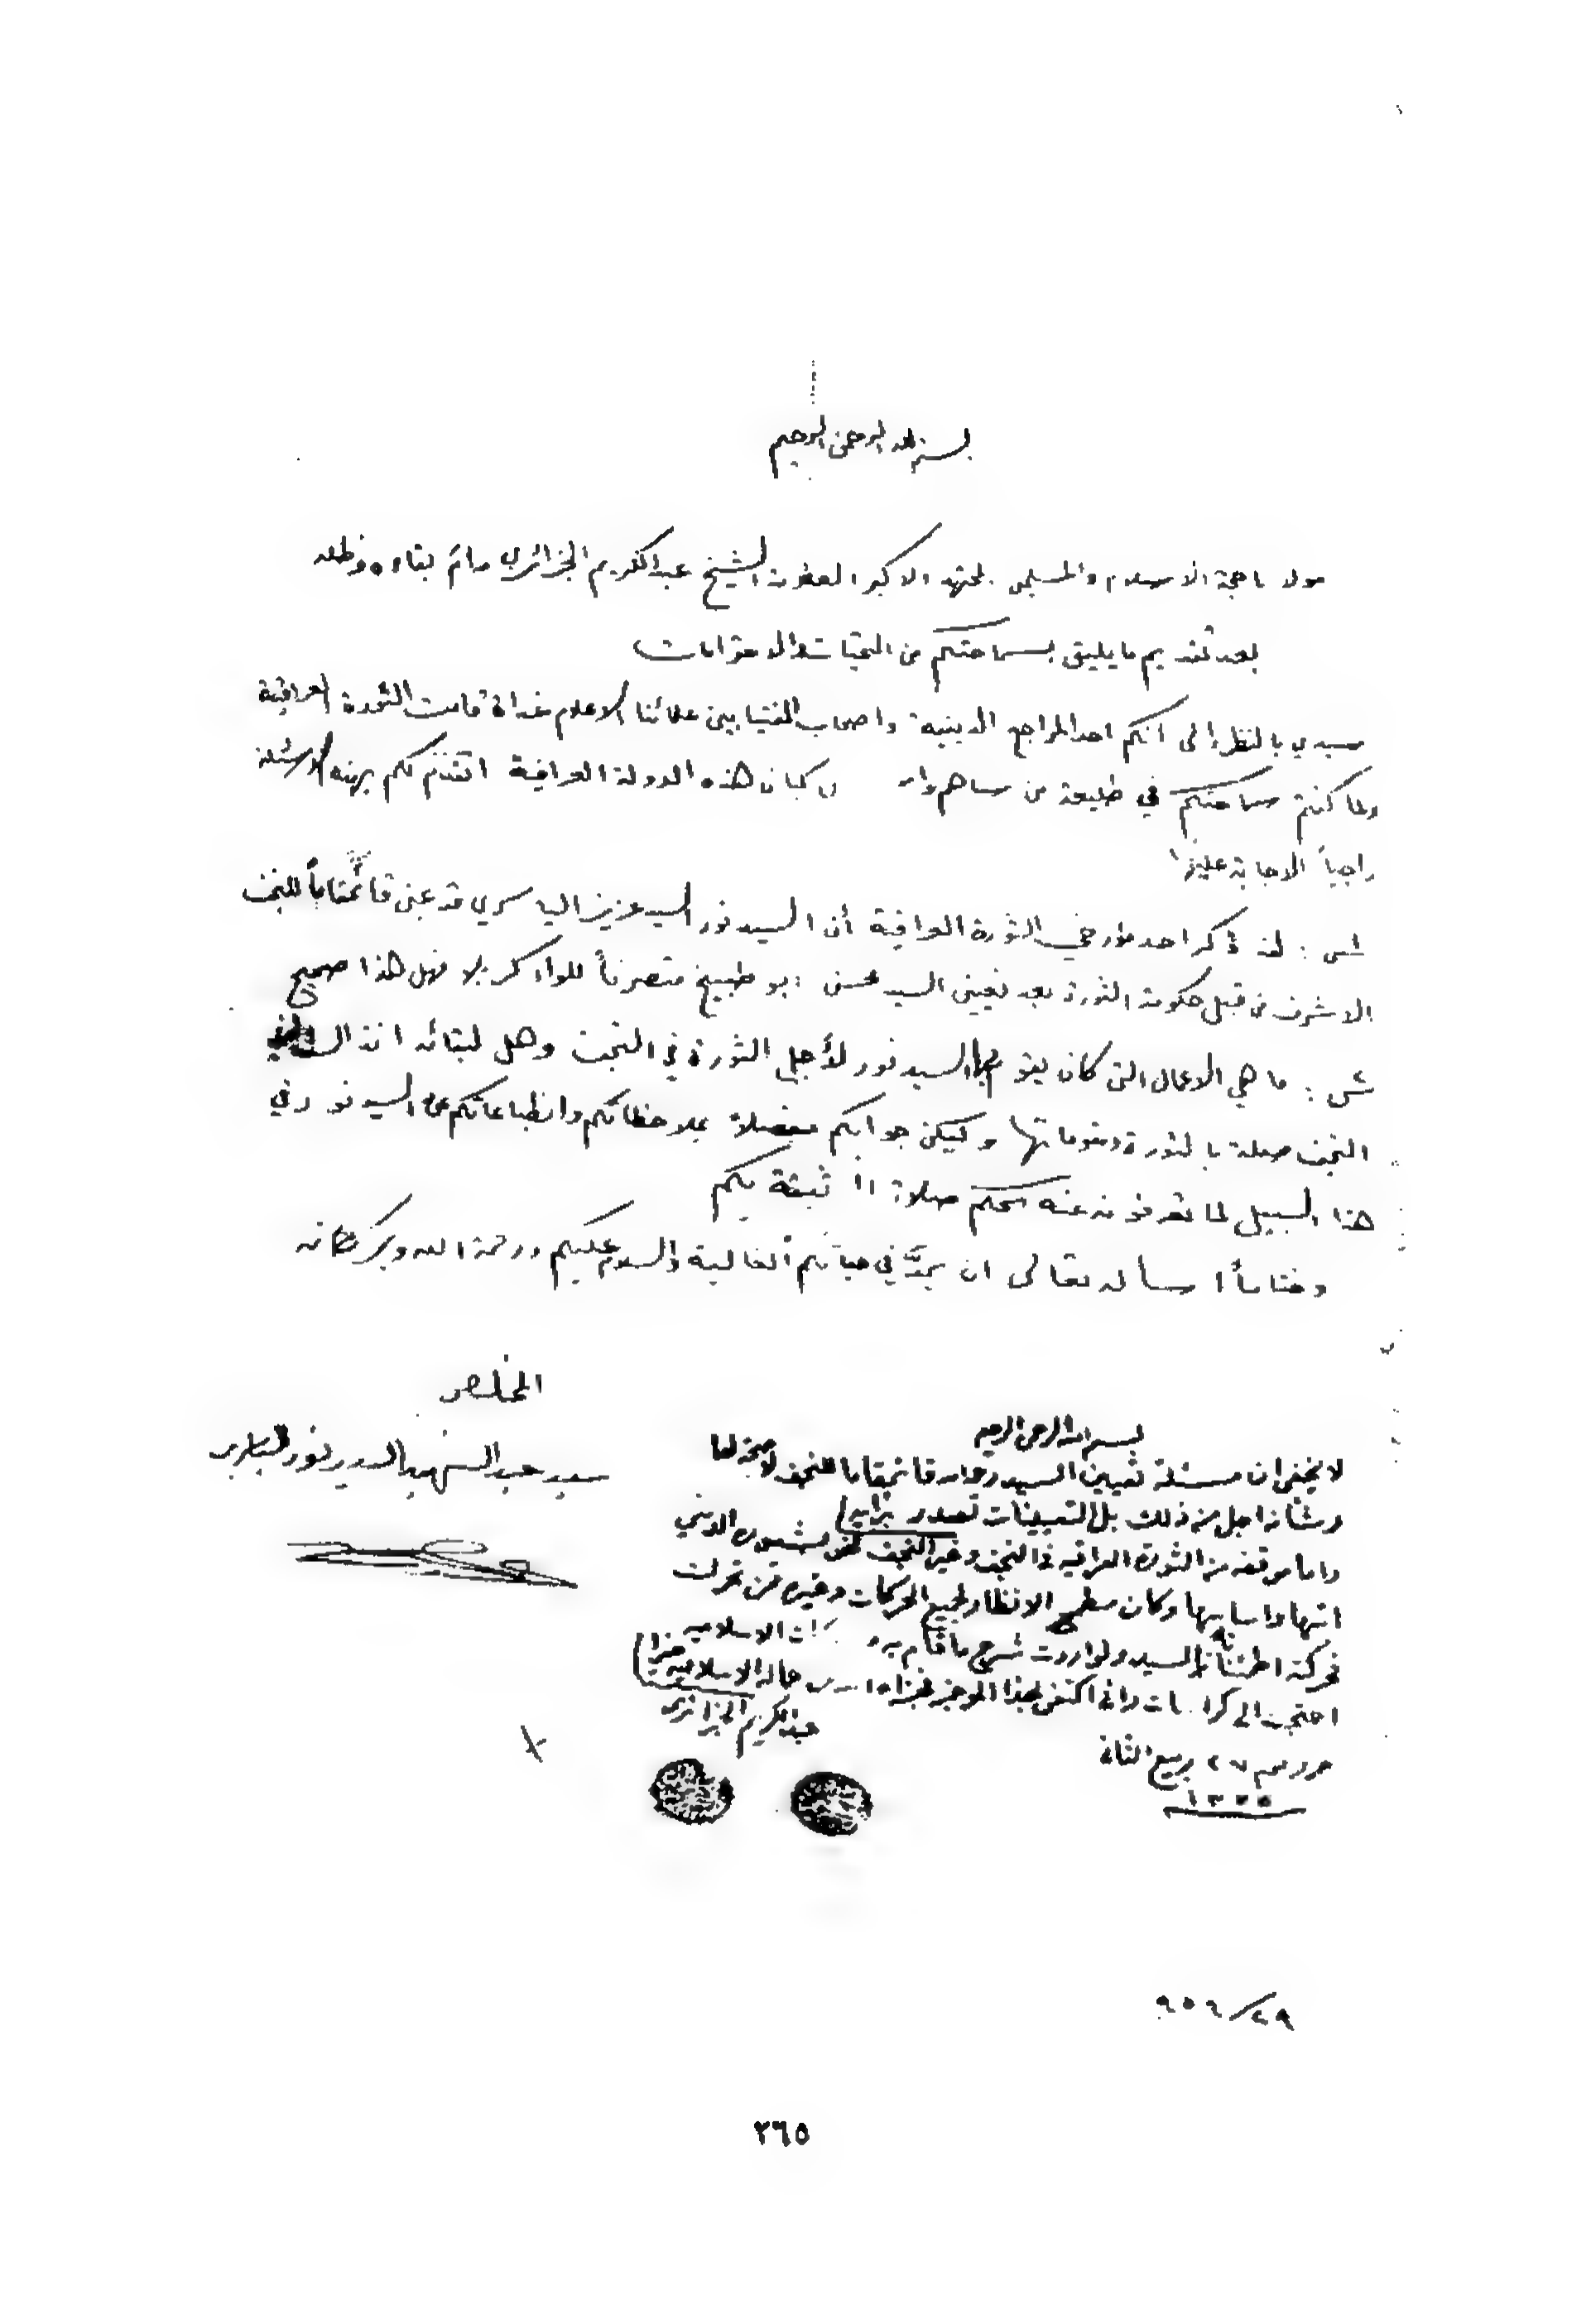 بسم الله الرحمن الرحيم
مولانا حجة الاسلام والمسلمين المجتهد الاكبر الشيخ عبدالكريم الجزائري دام بقاءه وظله
بعد تقديم ما يليق بسماحتكم من التحيات والاحترامات
سيدي بالنظر الى انكم احد المراجع الدينية واصحاب الفتيا بين علمائنا الاعلام غداة قامت الثورة العراقية
ولما كنتم سماحتكم في طليعة من ساهم كيان هذه الدولة العراقية اتقدم لكم بهذه الاسئلة
راجياً الاجابة عليها
س : لقد ذكر احد مؤرخي الثورة العراقية أن السيد نور السيد عزيز الياسري قد عين قائمقاماً للنجف
الاشرف من قبل حكومة الثورة بعد تعيين السيد محسن ابو طبيخ متصرفاً للواء كربلا فهل هذا صحيح
س : ما هي الاعمال التي كان يقوم بها السيد نور لأجل الثورة في النجف وهل لبقائه انذاك في
النجف صلة بالثورة ومقوماتها وليكن جوابكم مفصلا بملاحظاتكم وانطباعاتكم عن السيد نور في
هذا السبيل لما تعرفونه عنه بحكم صلاته الوثيقة بكم
وختاماً اسأله تعالى ان يمدّ في حياتكم الغالية والسلام عليكم ورحمة الله وبركاته
المخلص
سيد عبد الشهيد السيد نور الياسري
بسم الله الرحمن الرحيم
لا يخفى ان مسئلة تعيين السيد نور قائمقاما للنجف لا صحة لها
وشأنه اجل من ذلك بل التعيينات تصدر برأيه
واما موقفه من الثورة العراقيه في النجف وغير النجف فمن شعوره الديني
انتهاء واساسها وكان مطمح الانظار لجميع الحركات وغيره فمن تحركت
فحركته اطمئنانا بالسيد ولو اردت شرح ما قام به الاسلاميه
احتجت الى كراسات واني اكتفي بهذا الموجز فجزاه الله الاسلاميه خيرا
عبدالكريم الجزائري
حرر يوم ٢٧ ربيع الثاني
١٣٧٥
٩٥٦/٢٩
٣٦٥